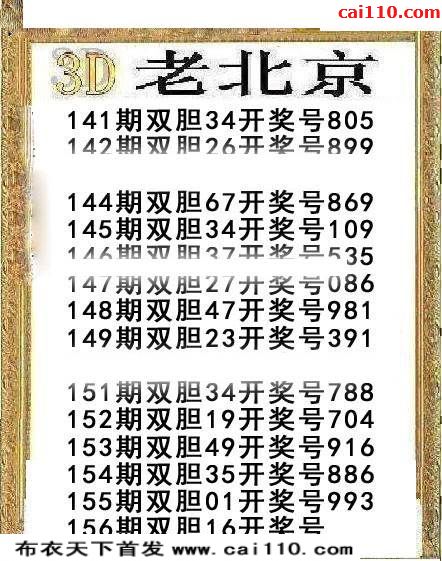 cai110.com
3D 老北京
141期双胆34开奖号805
142期双胆26开奖号899
144期双胆67开奖号869
145期双胆34开奖号109
146期双胆37开奖号535
147期双胆27开奖号086
148期双胆47开奖号981
149期双胆23开奖号391
151期双胆34开奖号788
152期双胆19开奖号704
153期双胆49开奖号916
154期双胆35开奖号886
155期双胆01开奖号993
156期双胆16开奖号
布衣天下首发 www.cai110.com